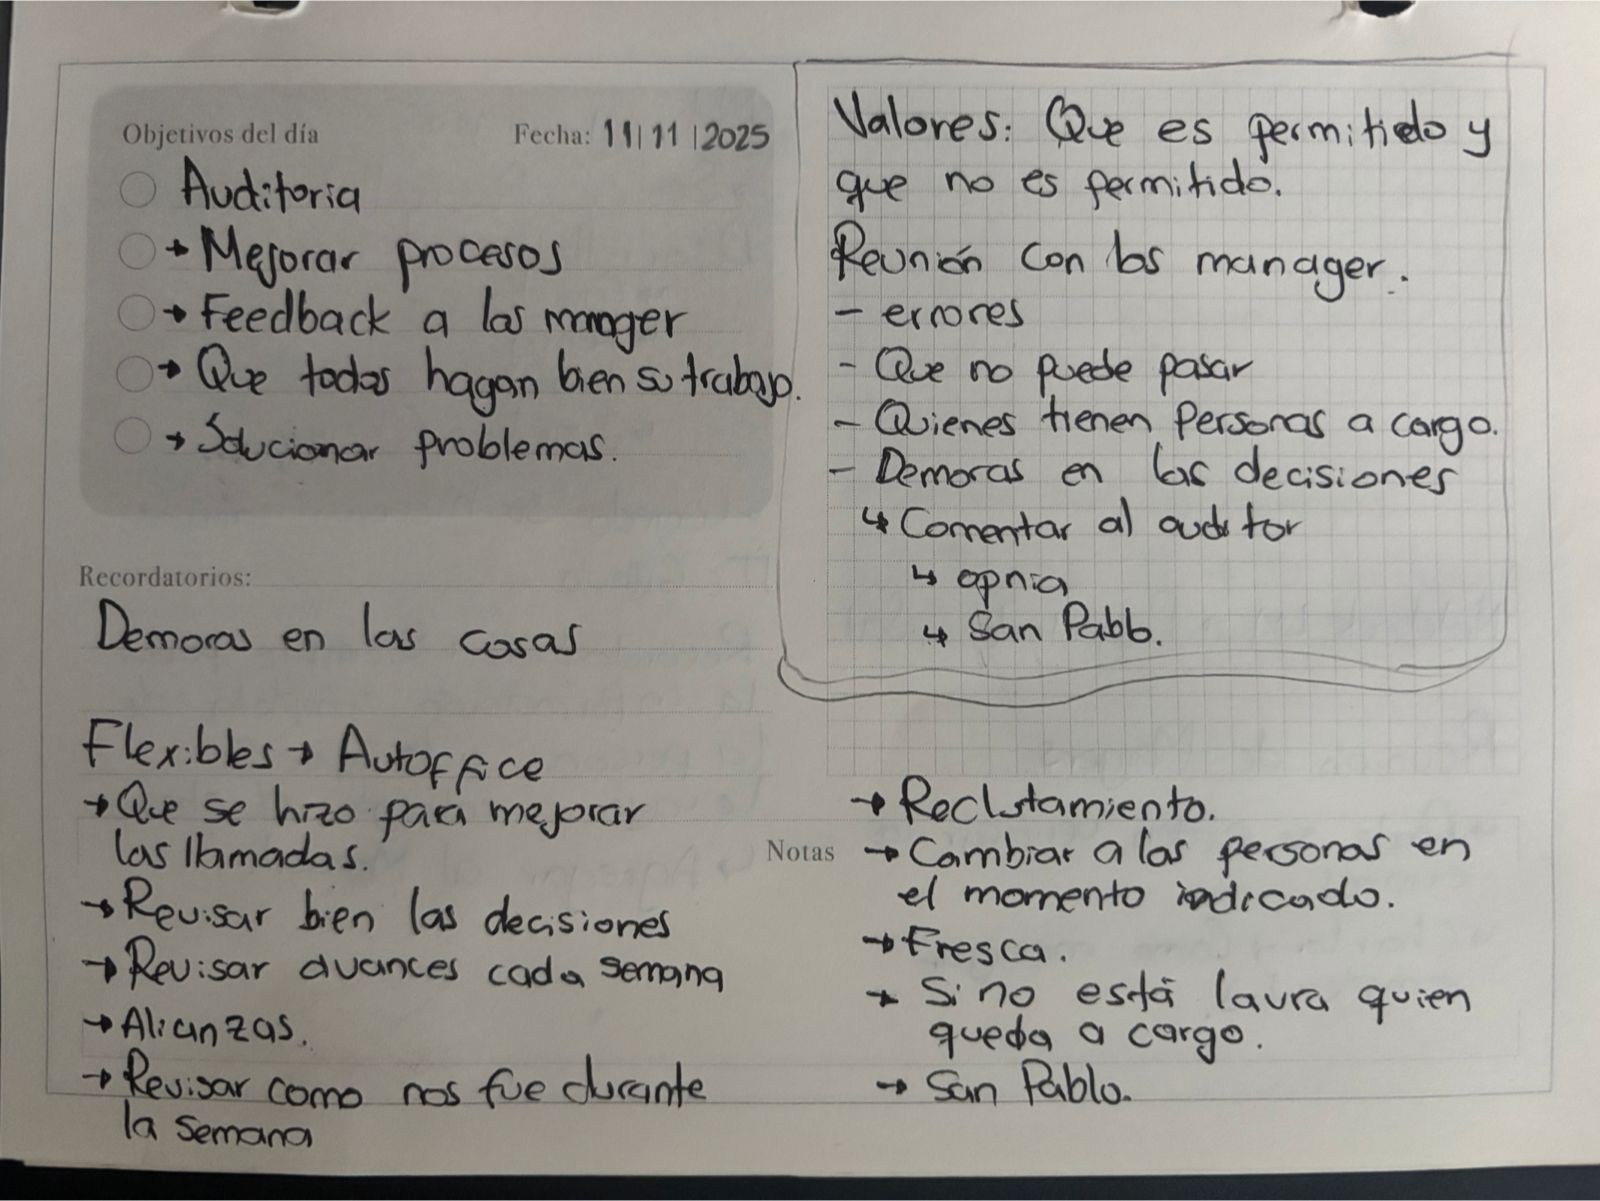 Objetivos del día
Fecha: 11/11/2025
Auditoria
→ Mejorar procesos
→ Feedback a las manager
→ Que todas hagan bien su trabajo.
→ Solucionar problemas.
Recordatorios:
Demoras en las cosas
Flexibles → Autoffice
→ Que se hizo para mejorar
las llamadas.
→ Revisar bien las decisiones
→ Revisar avances cada semana
→ Alianzas.
→ Revisar como nos fue durante
la semana
Valores: Que es permitido y
que no es permitido.
Reunión con los manager.
- errores
- Que no puede pasar
- Quienes tienen personas a cargo.
- Demoras en las decisiones
↳ Comentar al auditor
↳ opnia
↳ San Pablo.
Notas
→ Reclutamiento.
→ Cambiar a las personas en
el momento indicado.
→ Fresca.
→ Si no está laura quien
queda a cargo.
→ San Pablo.